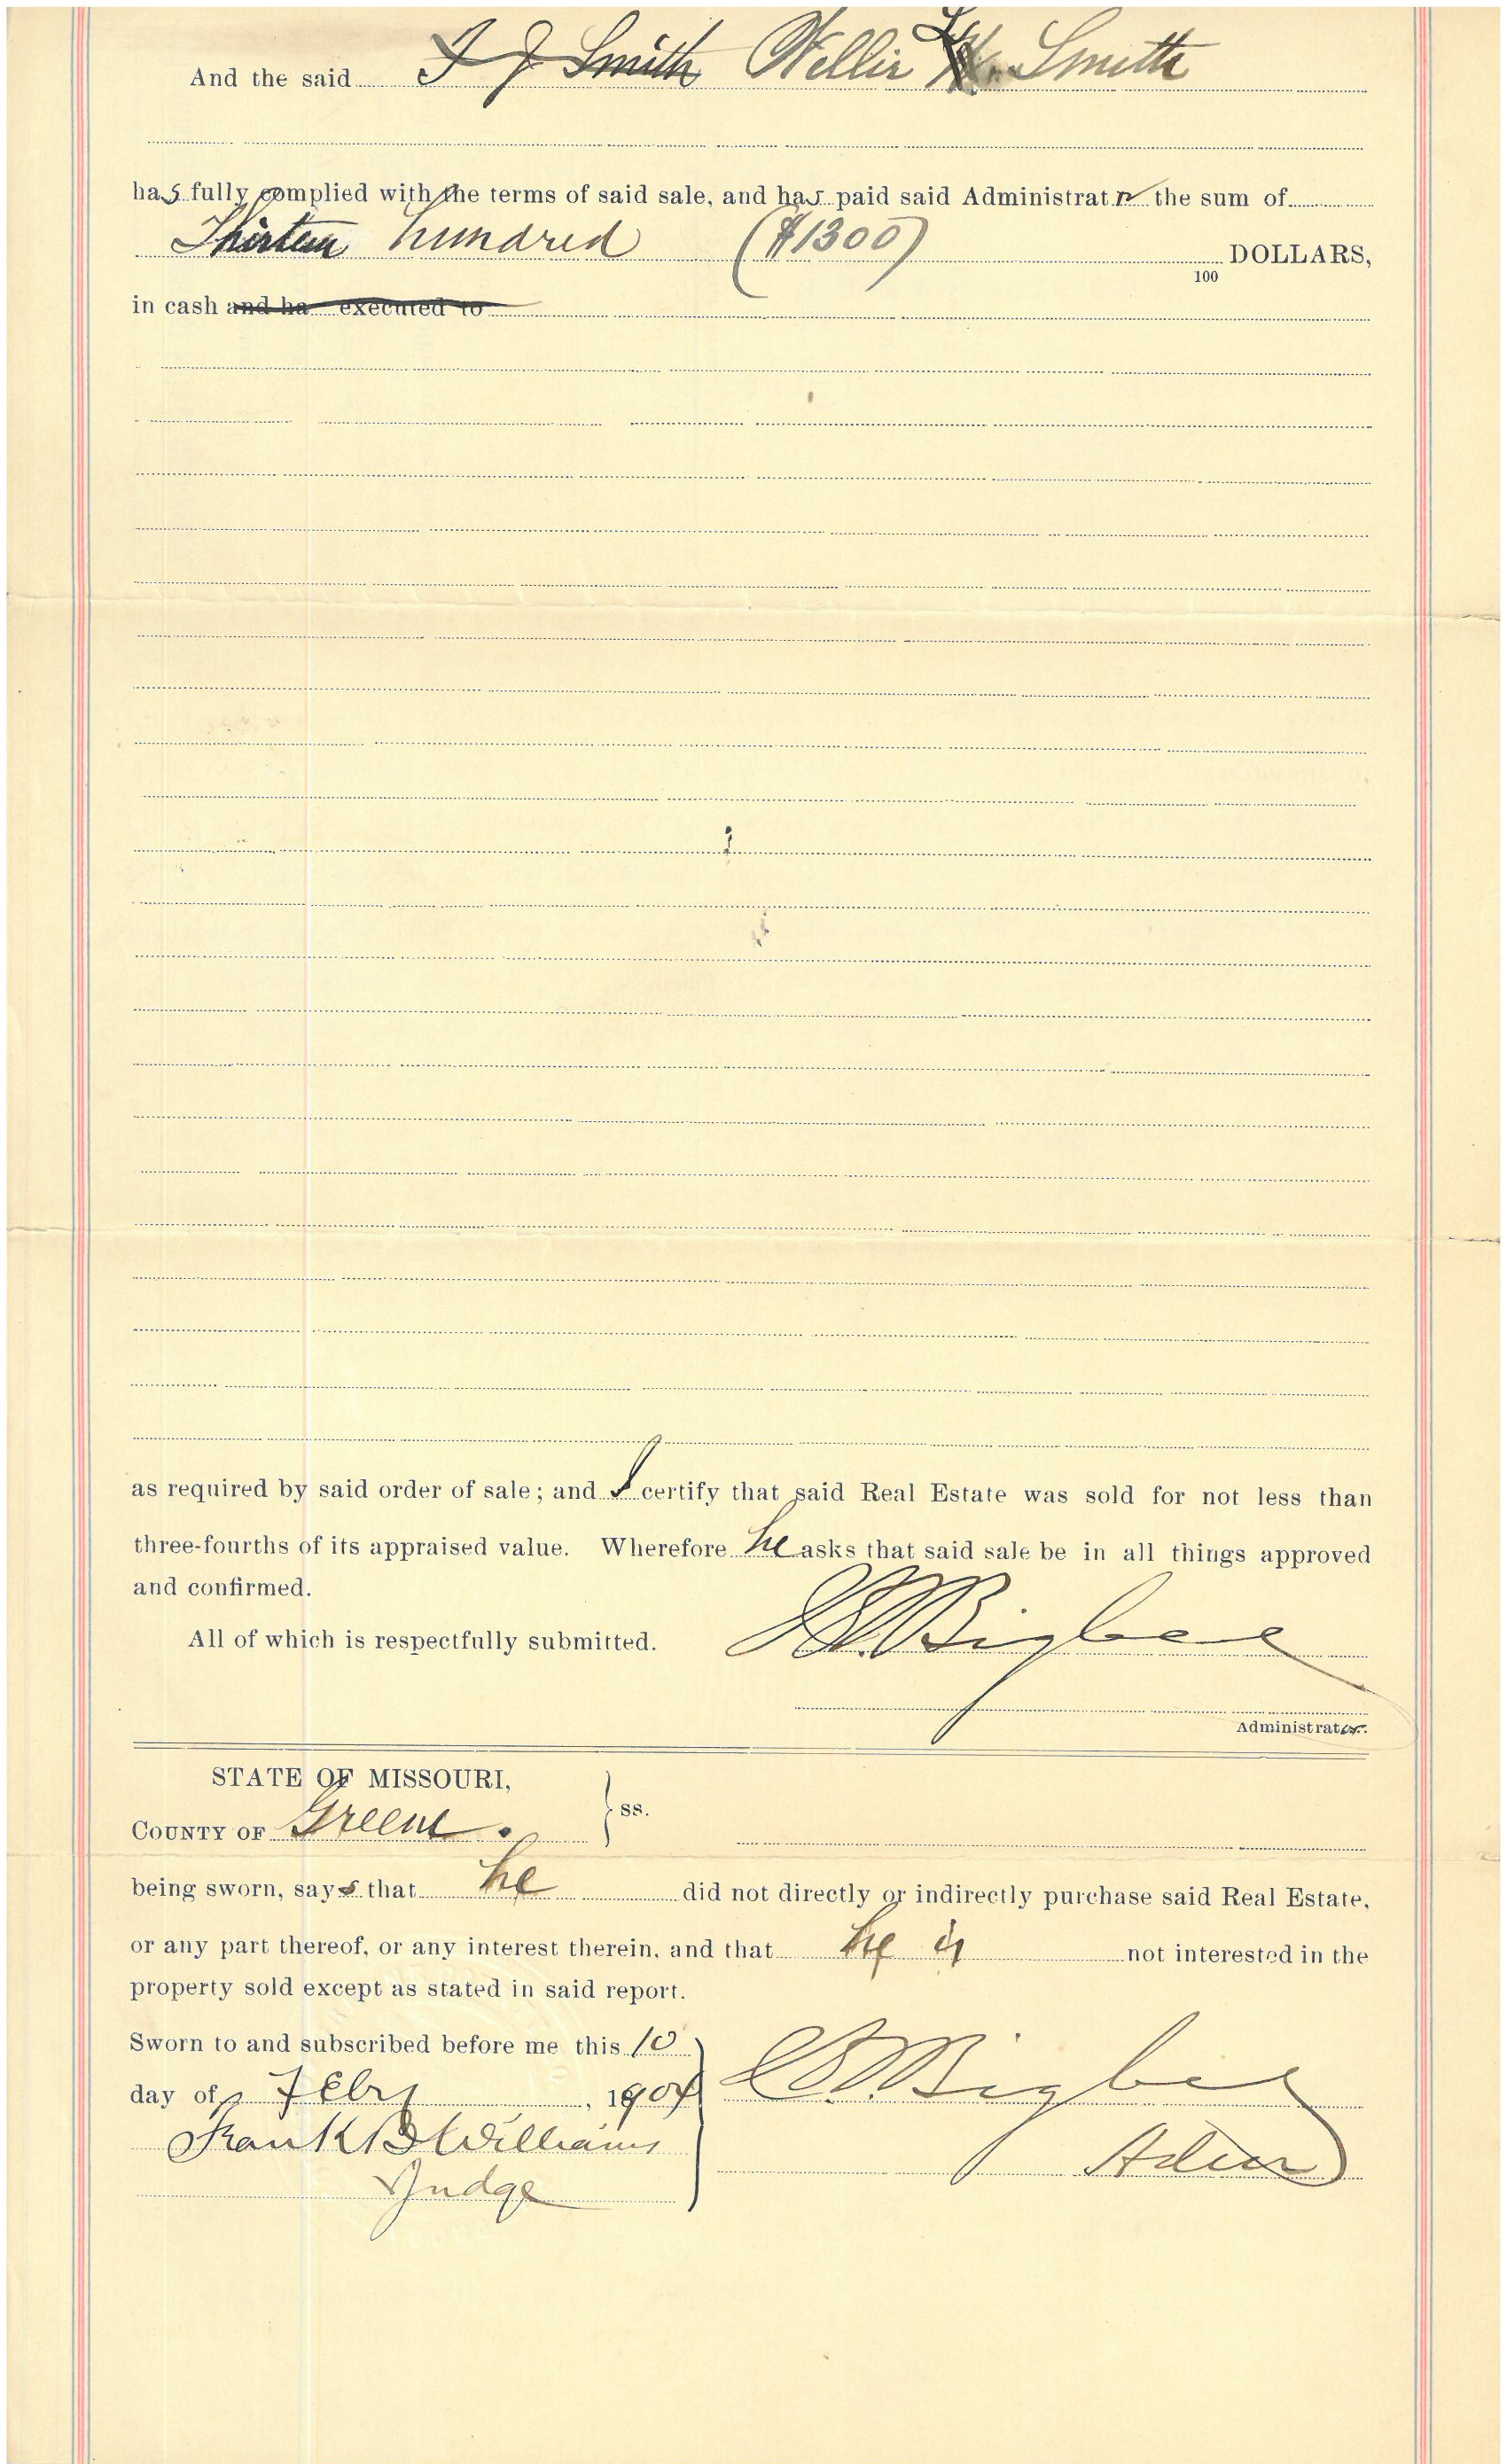 And the said I J Smith Nellie L. Smith
has fully complied with the terms of said sale, and has paid said Administrator the sum of
Thirteen hundred ($1300) /100 DOLLARS,
in cash and ha executed to
as required by said order of sale; and I certify that said Real Estate was sold for not less than
three-fourths of its appraised value. Wherefore he asks that said sale be in all things approved
and confirmed.
All of which is respectfully submitted. Bigbee
Administrator.
STATE OF MISSOURI,
COUNTY OF Greene. } ss.
being sworn, says that he did not directly or indirectly purchase said Real Estate,
or any part thereof, or any interest therein, and that he is not interested in the
property sold except as stated in said report.
Sworn to and subscribed before me this 10
day of Feby, 190 Bigbee
Frank B Williams Admr
Judge